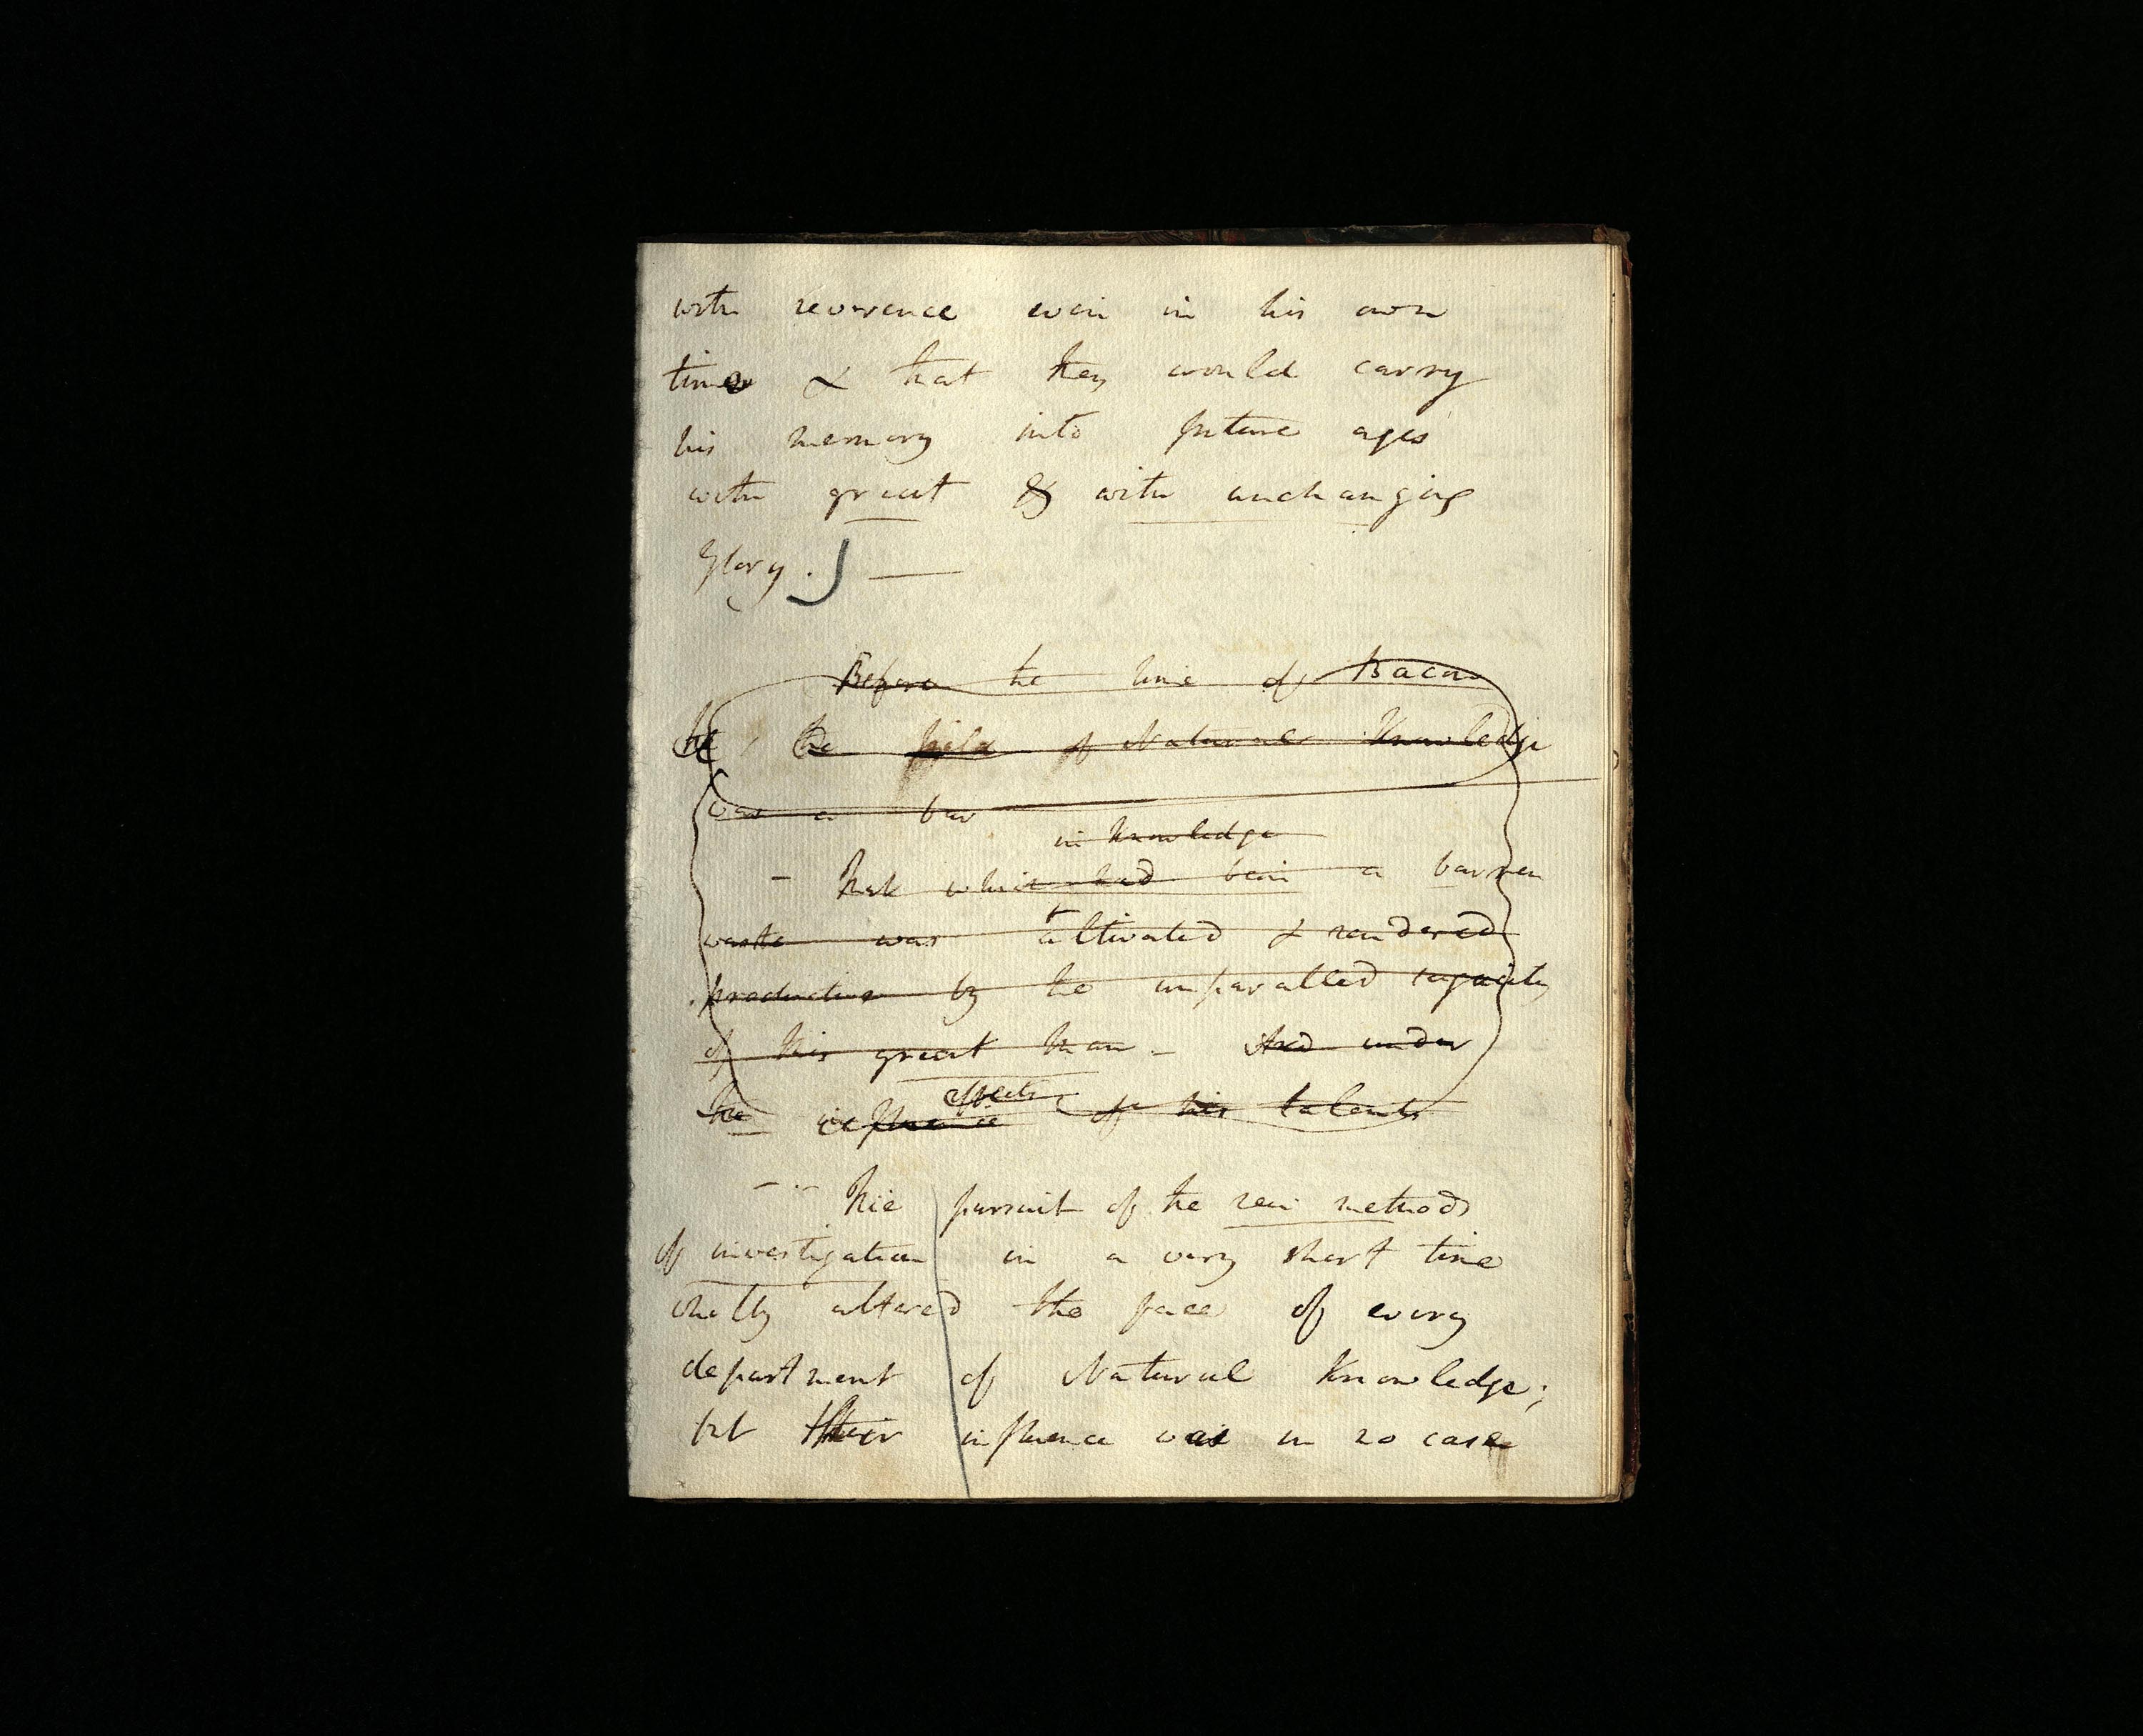 with reverence even in his own
time & that they would carry
his memory into future ages
with great & with unchanging
glory. —
Before the time of Bacon
the the field of Natural Knowledge
was a bar
in knowledge
- that which had been a barren
waste was cultivated & rendered
productive by the unparalled sagacity
of this great Man - And under
effects
the influence of his talents
- The pursuit of the new methods
of investigation in a very short time
wholly altered the face of every
department of Natural Knowledge;
but their influence was in no case